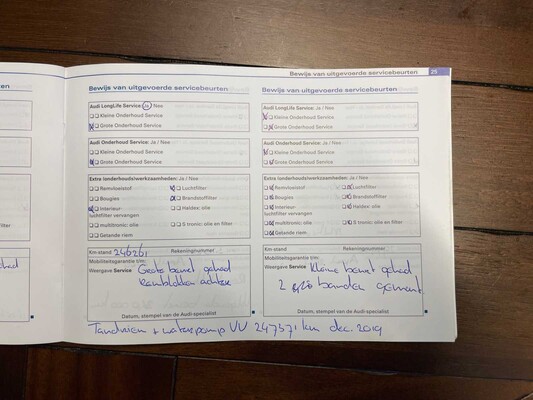 Bewijs van uitgevoerde servicebeurten 25
Bewijs van uitgevoerde servicebeurten
Audi LongLife Service: Ja / Nee
Kleine Onderhoud Service
Grote Onderhoud Service
Audi Onderhoud Service: Ja / Nee
Kleine Onderhoud Service
Grote Onderhoud Service
Extra (onderhouds)werkzaamheden: Ja / Nee
Remvloeistof Luchtfilter
Bougies Brandstoffilter
Interieur- Haldex: olie
luchtfilter vervangen
multitronic: olie S tronic: olie en filter
Getande riem
Km-stand 246261 Rekeningnummer
Mobiliteitsgarantie t/m:
Weergave Service Grote beurt gehad
Remblokken achter
Datum, stempel van de Audi-specialist
Bewijs van uitgevoerde servicebeurten
Audi LongLife Service: Ja / Nee
Kleine Onderhoud Service
Grote Onderhoud Service
Audi Onderhoud Service: Ja / Nee
Kleine Onderhoud Service
Grote Onderhoud Service
Extra (onderhouds)werkzaamheden: Ja / Nee
Remvloeistof Luchtfilter
Bougies Brandstoffilter
Interieur- Haldex: olie
luchtfilter vervangen
multitronic: olie S tronic: olie en filter
Getande riem
Km-stand Rekeningnummer
Mobiliteitsgarantie t/m:
Weergave Service Kleine beurt gehad
2 banden
Datum, stempel van de Audi-specialist
Tandriem + waterpomp VV 247571 km dec. 2019